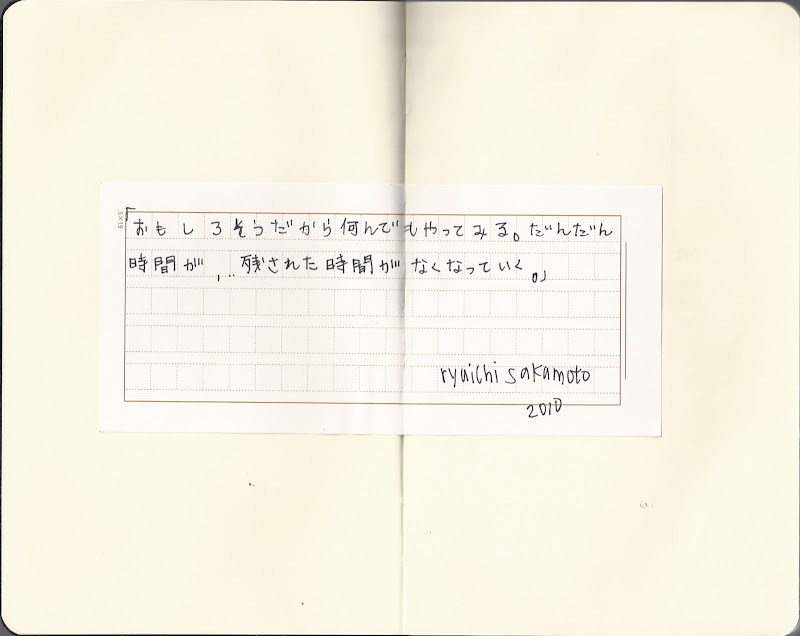 5×19
「おもしろそうだから何んでもやってみる。だんだん
時間が、…残された時間がなくなっていく。」
ryuichi sakamoto
2010